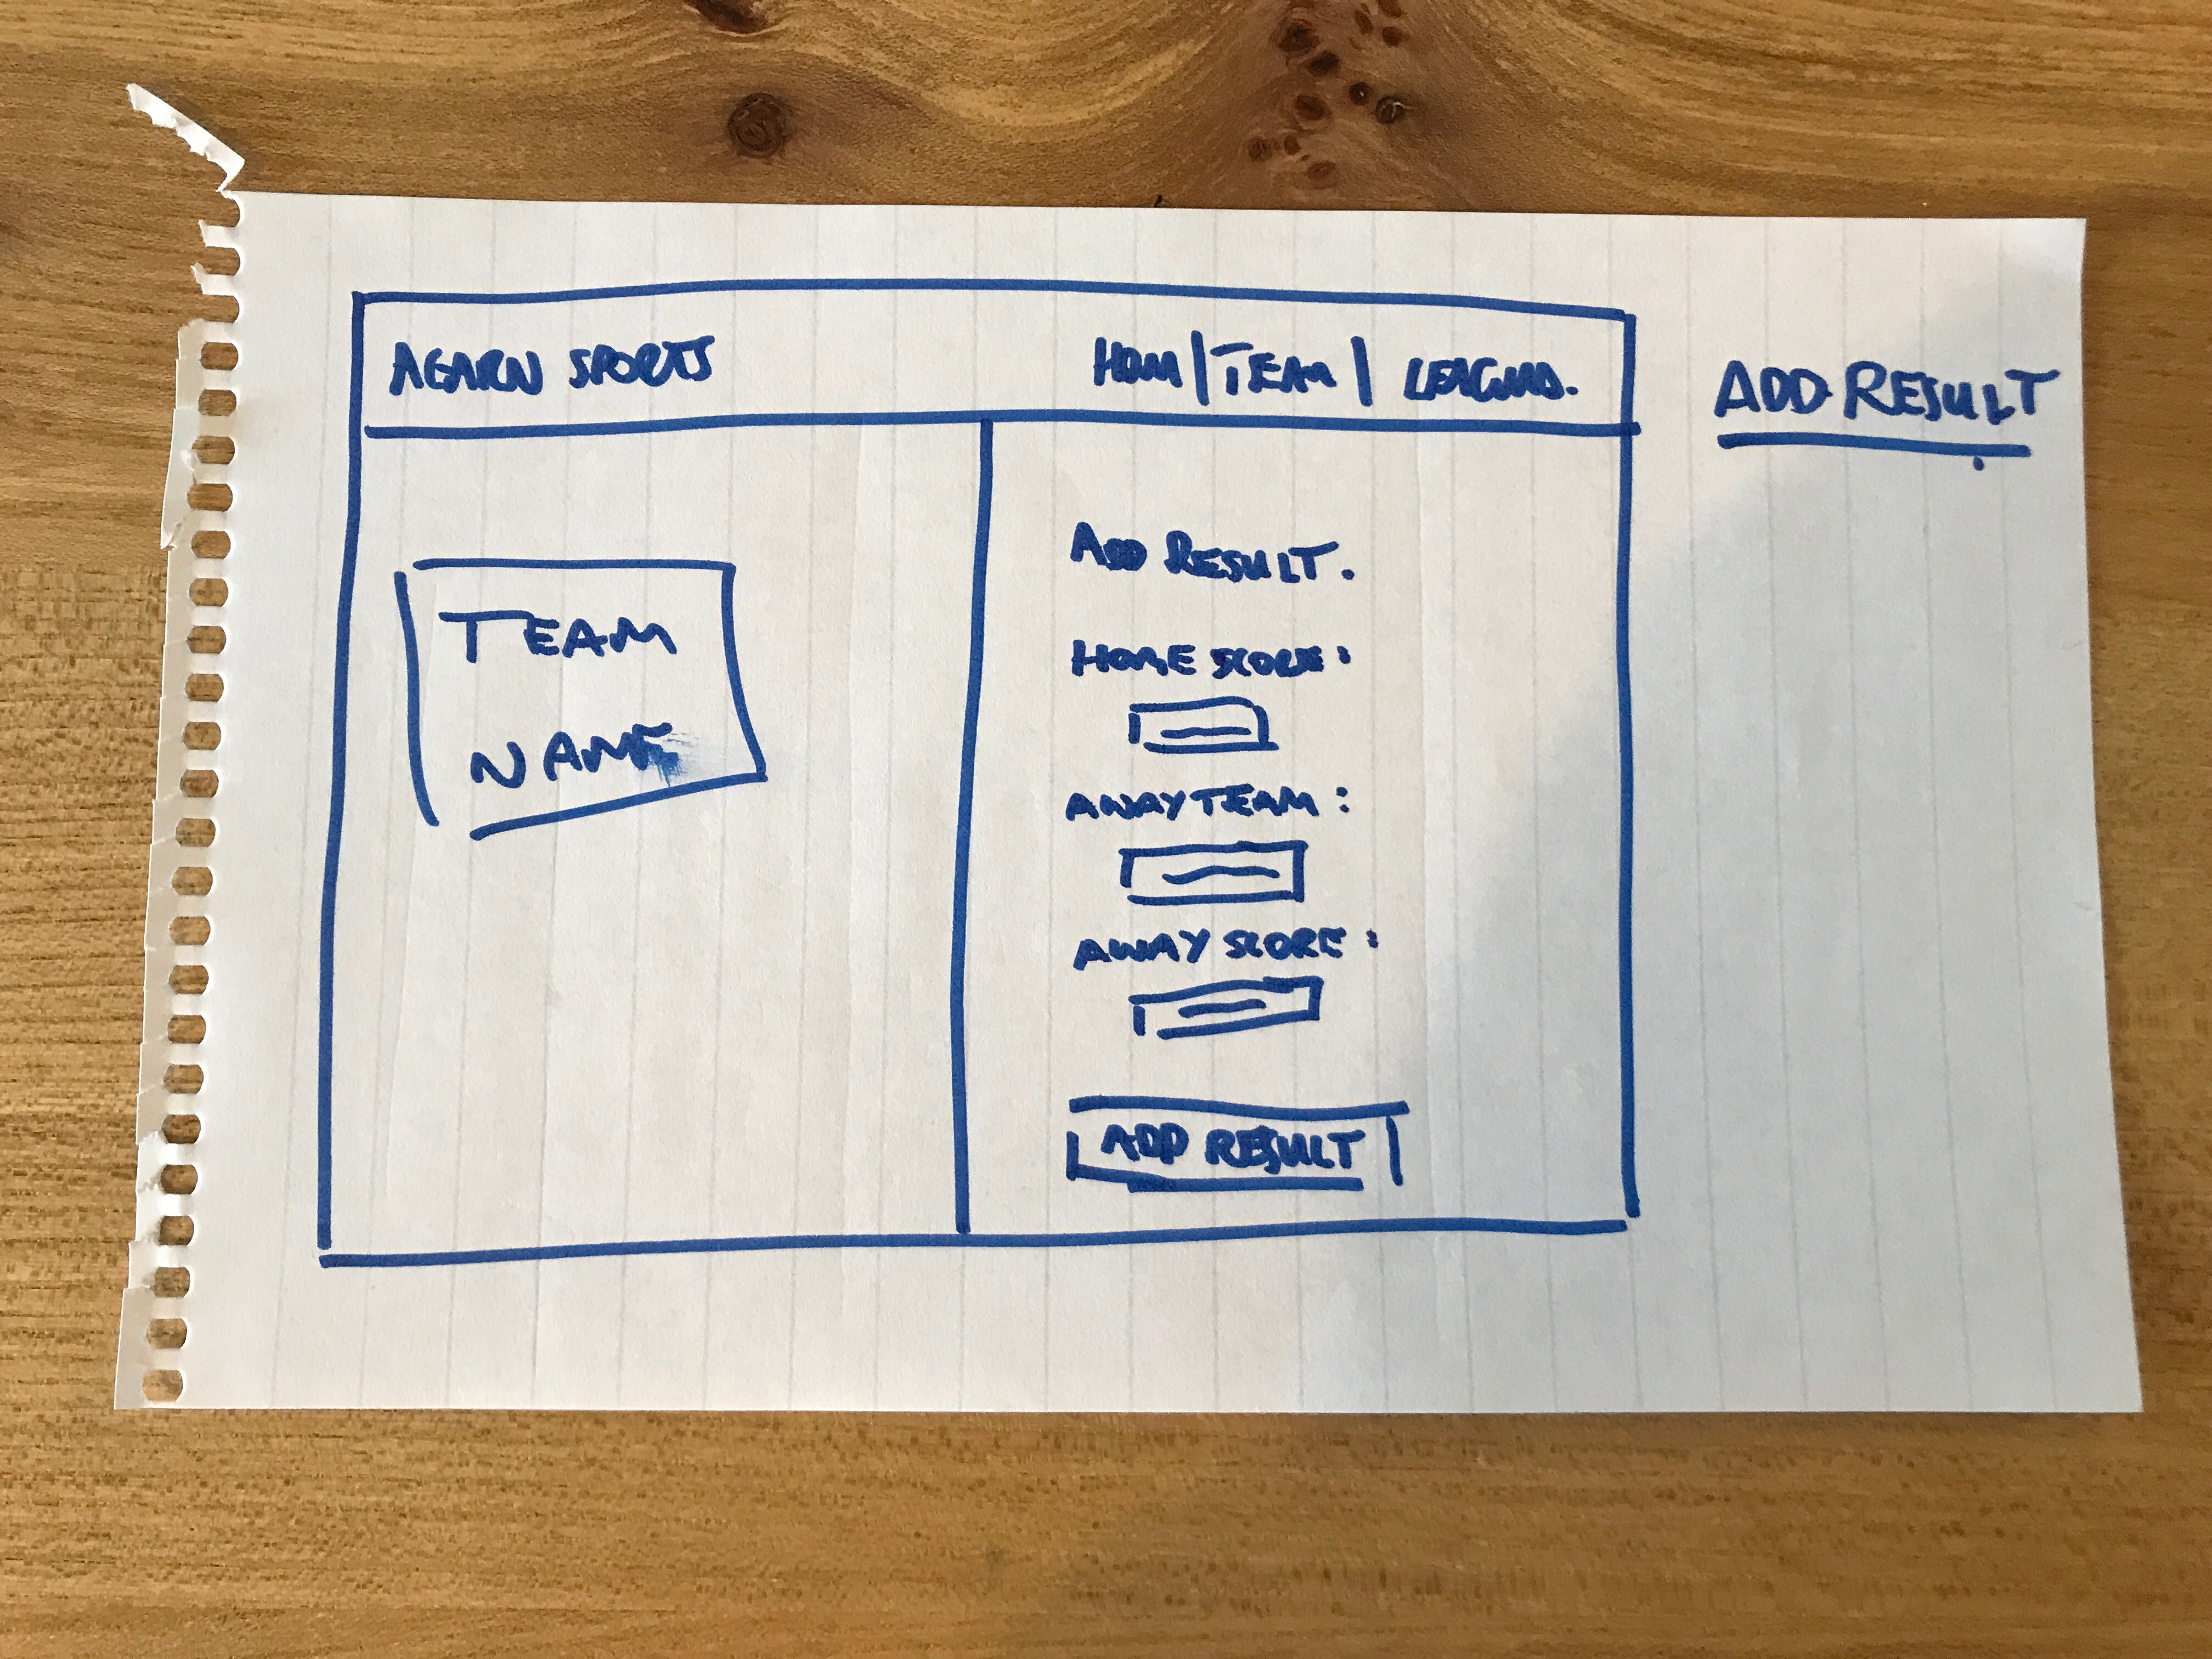 AGARN SPORTS
HOM | TEAM |
ADD RESULT
TEAM
NAME
ADD RESULT.
HOME SCORE:
AWAY TEAM:
AWAY SCORE:
ADD RESULT